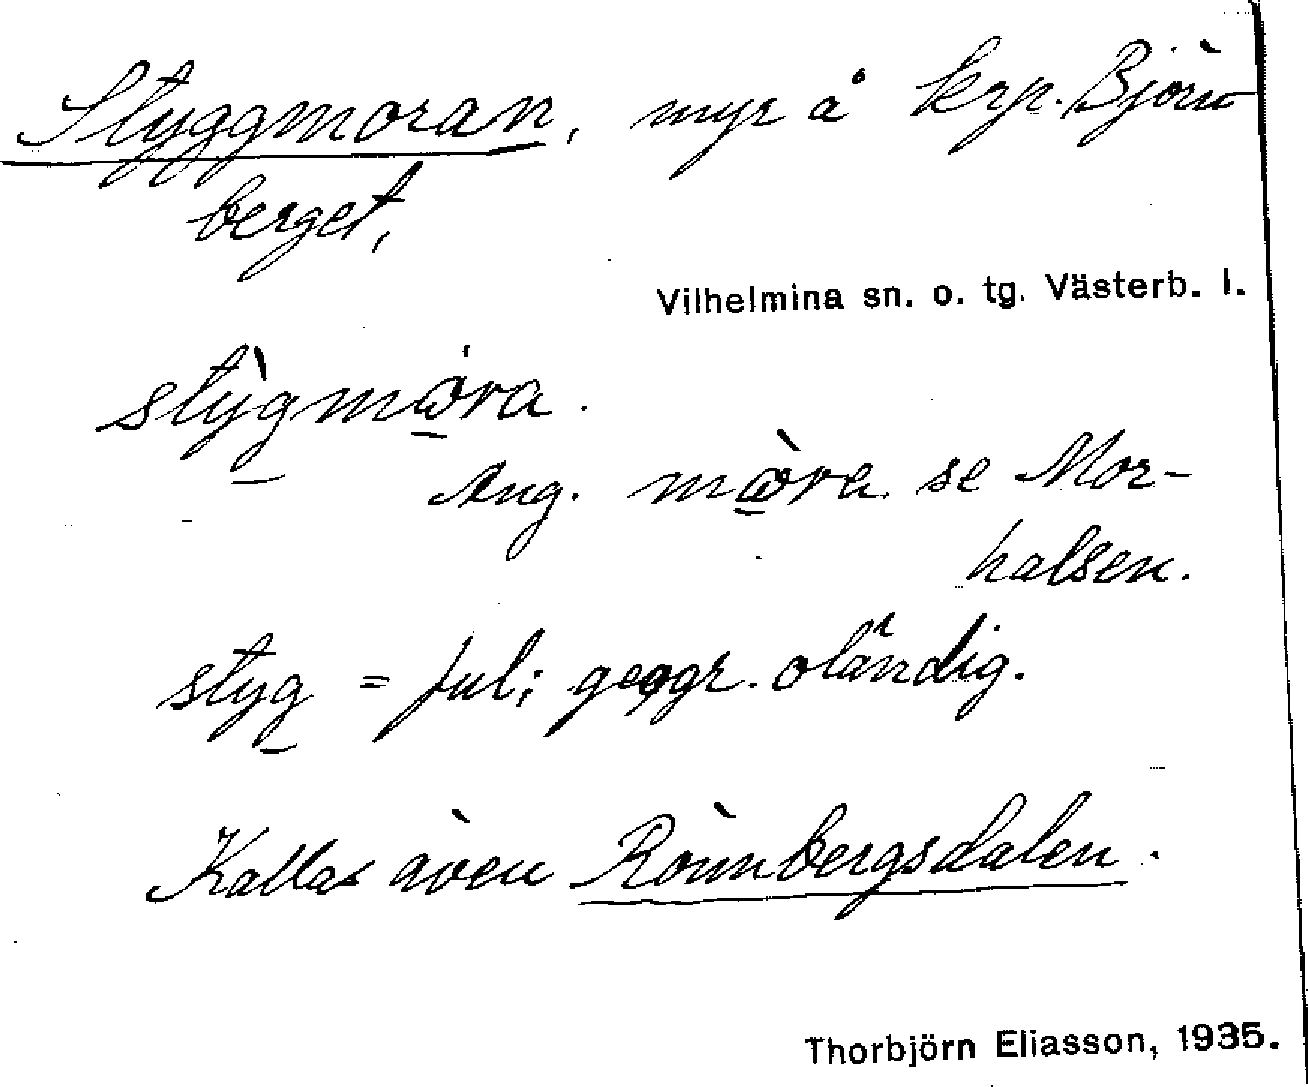 Styggmoran, myr å krp. Björn
berget,
Vilhelmina sn. o. tg. Västerb. l.
stỳgmòra.
Ang. mòra se Mor-
halsen.
styg = ful; geogr. oländig.
Kallas även Rönnbergsdalen.
Thorbjörn Eliasson, 1935.